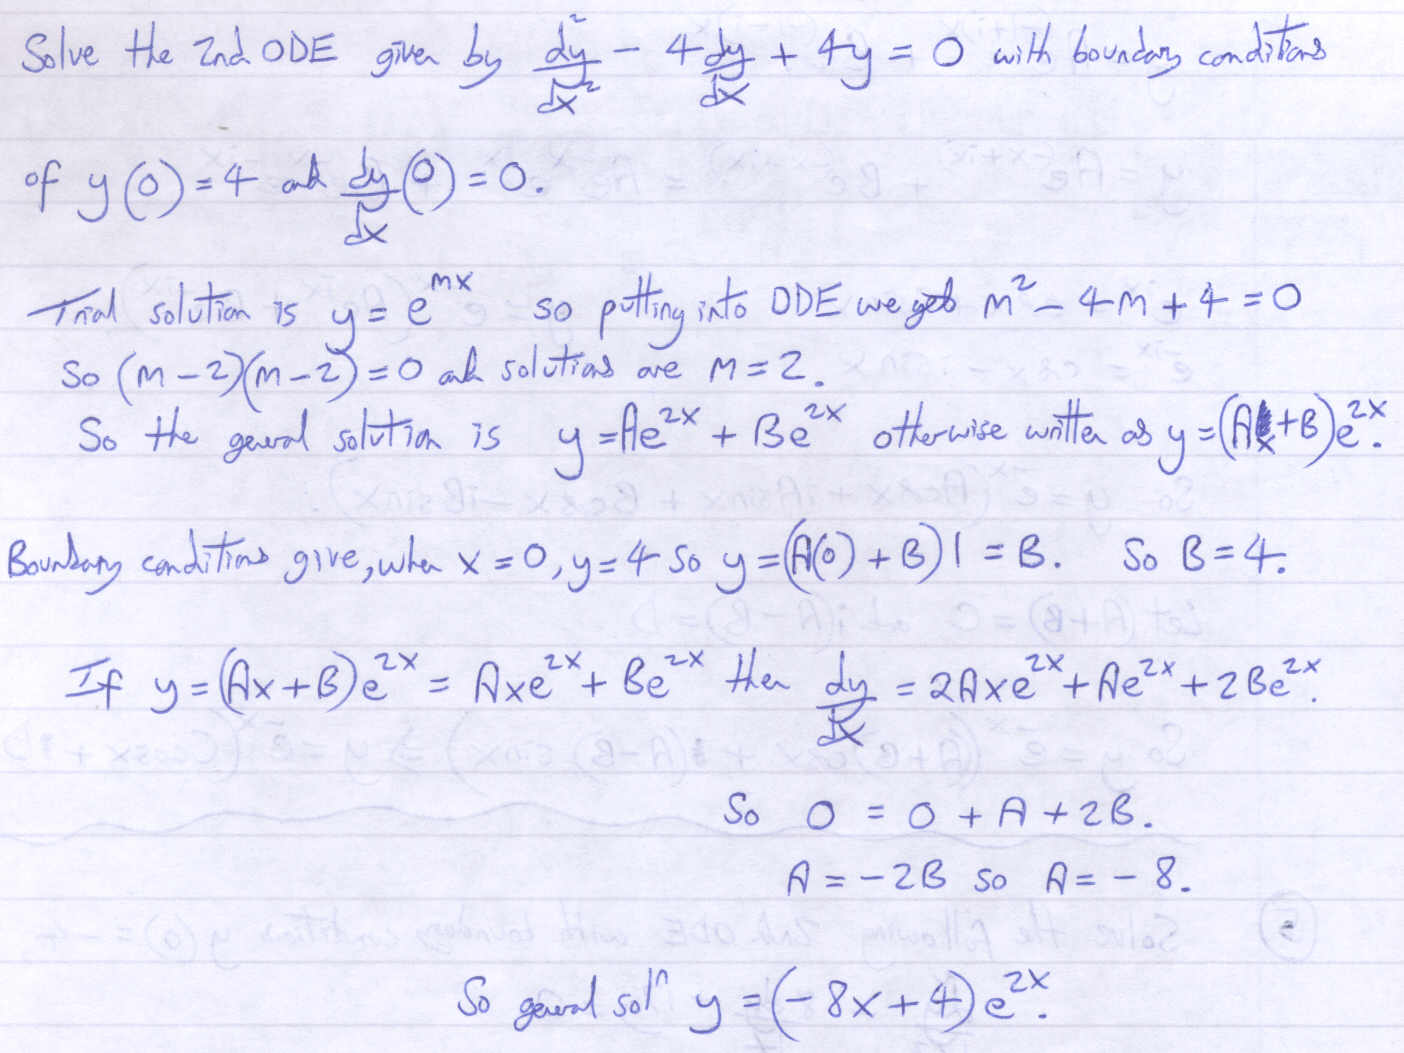 Solve the 2nd ODE given by d²y/dx² - 4 dy/dx + 4y = 0 with boundary conditions
of y(0) = 4 and dy/dx (0) = 0.
Trial solution is y = e^mx so putting into ODE we get m² - 4m + 4 = 0
So (m - 2)(m - 2) = 0 and solutions are m = 2.
So the general solution is y = Ae^2x + Be^2x otherwise written as y = (Ax + B)e^2x.
Boundary conditions give, when x = 0, y = 4 so y = (A(0) + B)1 = B. So B = 4.
If y = (Ax + B)e^2x = Axe^2x + Be^2x then dy/dx = 2Axe^2x + Ae^2x + 2Be^2x.
So 0 = 0 + A + 2B.
A = -2B so A = -8.
So general solⁿ y = (-8x + 4)e^2x.